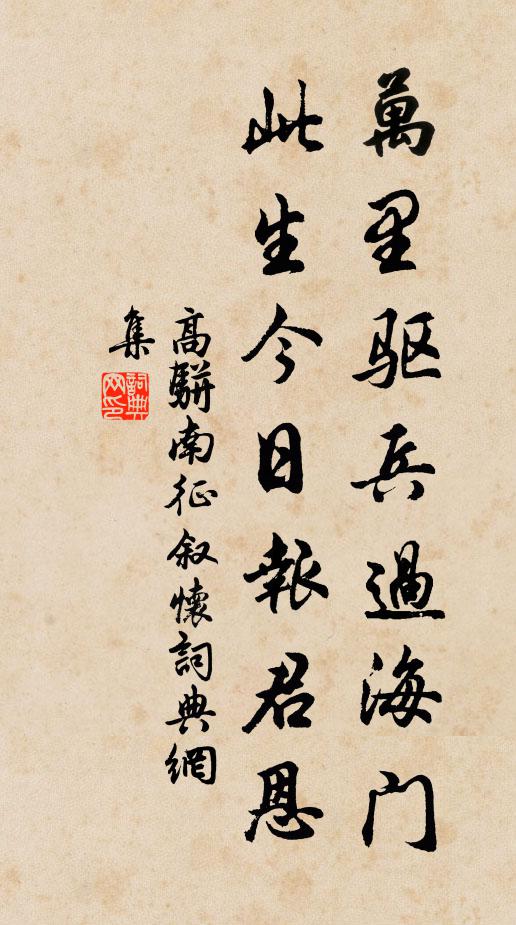 萬里驱兵過海门
此生今日報君恩
高駢南征叙懷詞典網
集
詞典網印